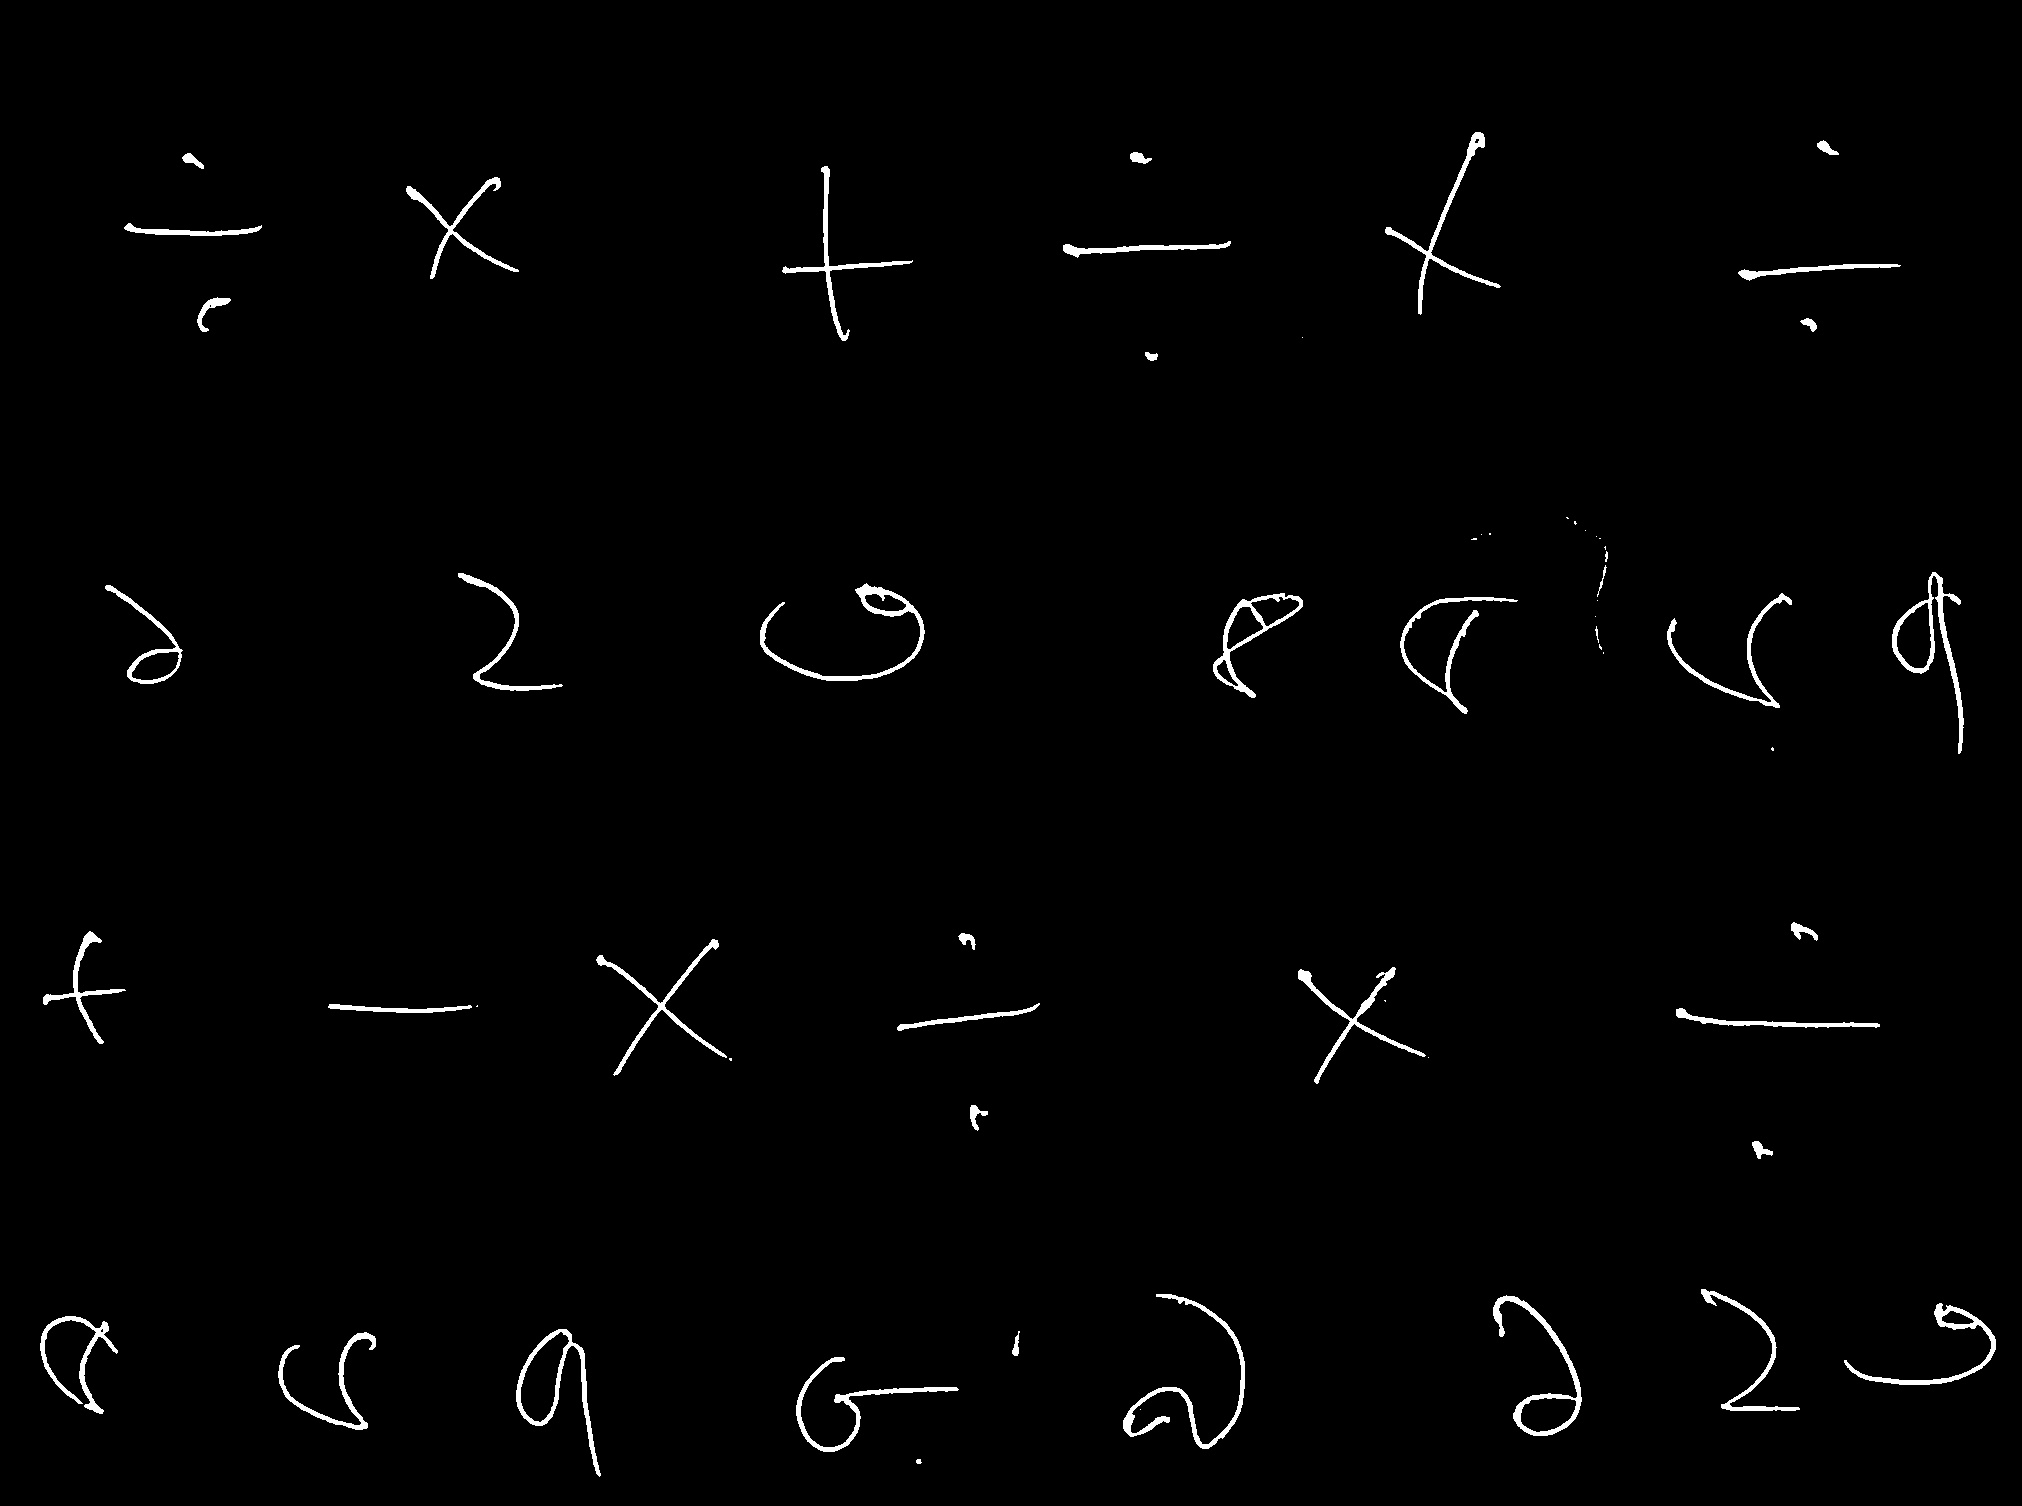 ÷ × + ÷ × ÷
১ ২ ৩ ৪ ৫ ৬ ৭
+ - × ÷ × ÷
৫ ৬ ৭ ৮ ৯ ১ ২ ৩